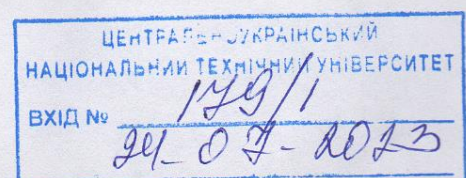 ЦЕНТРАЛЬНОУКРАЇНСЬКИЙ
НАЦІОНАЛЬНИЙ ТЕХНІЧНИЙ УНІВЕРСИТЕТ
ВХІД № 179/1
24-07-2023